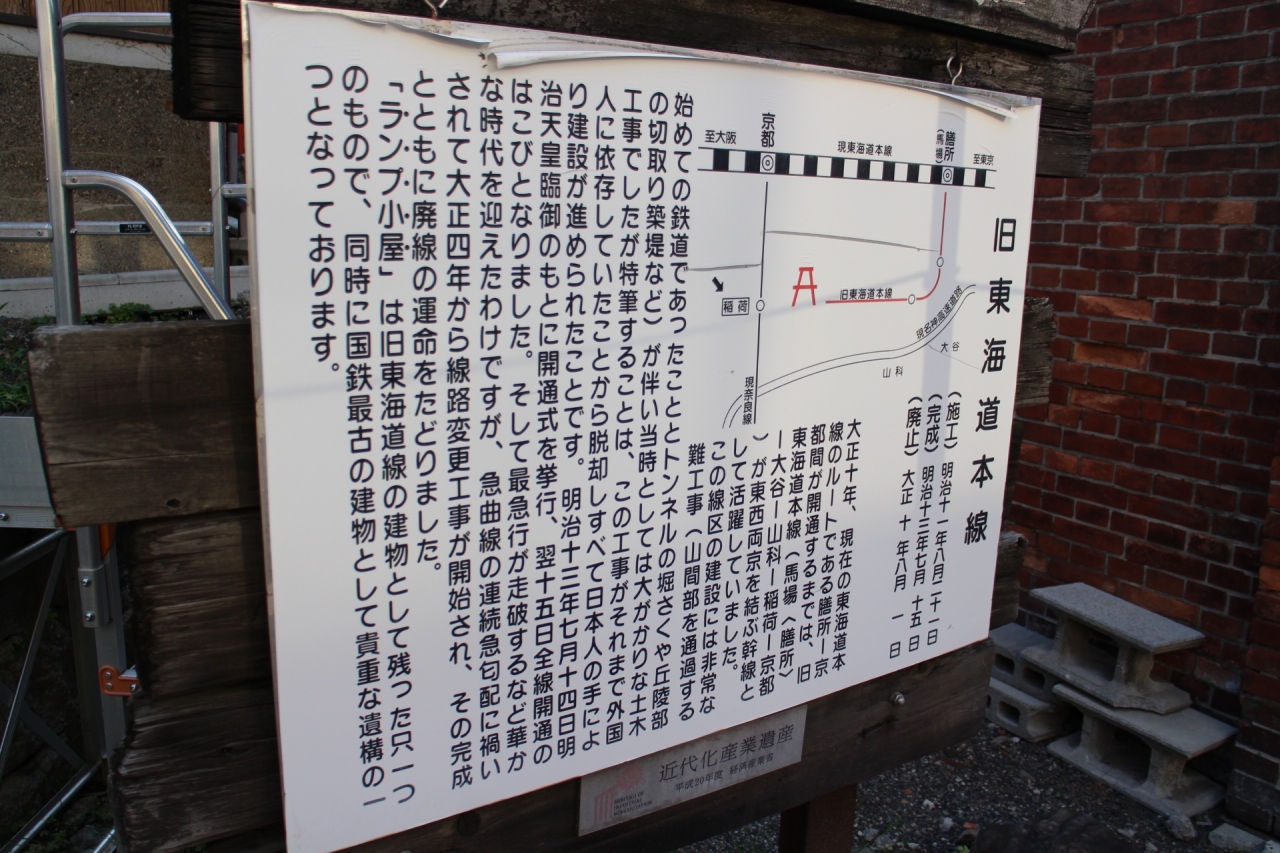 旧東海道本線
(施工) 明治十一年八月二十一日
(完成) 明治十三年七月十五日
(廃止) 大正十年八月一日
至大阪
京都
現東海道本線
膳所
(馬場)
至東京
稲荷
旧東海道本線
現名神高速道路
大谷
山科
現奈良線
大正十年、現在の東海道本
線のルートである膳所ー京
都間が開通するまでは、旧
東海道本線(馬場〈膳所〉
ー大谷ー山科ー稲荷ー京都
)が東西両京を結ぶ幹線と
して活躍していました。
この線区の建設には非常な
難工事(山間部を通過する
始めての鉄道であったこととトンネルの堀さくや丘陵部
の切取り築堤など)が伴い当時としては大がかりな土木
工事でしたが特筆することは、この工事がそれまで外国
人に依存していたことから脱却しすべて日本人の手によ
り建設が進められたことです。明治十三年七月十四日明
治天皇臨御のもとに開通式を挙行、翌十五日全線開通の
はこびとなりました。そして最急行が走破するなど華か
な時代を迎えたわけですが、急曲線の連続急勾配に禍い
されて大正四年から線路変更工事が開始され、その完成
とともに廃線の運命をたどりました。
「ランプ小屋」は旧東海道線の建物として残った只一つ
のもので、同時に国鉄最古の建物として貴重な遺構の一
つとなっております。
近代化産業遺産
平成20年度 経済産業省